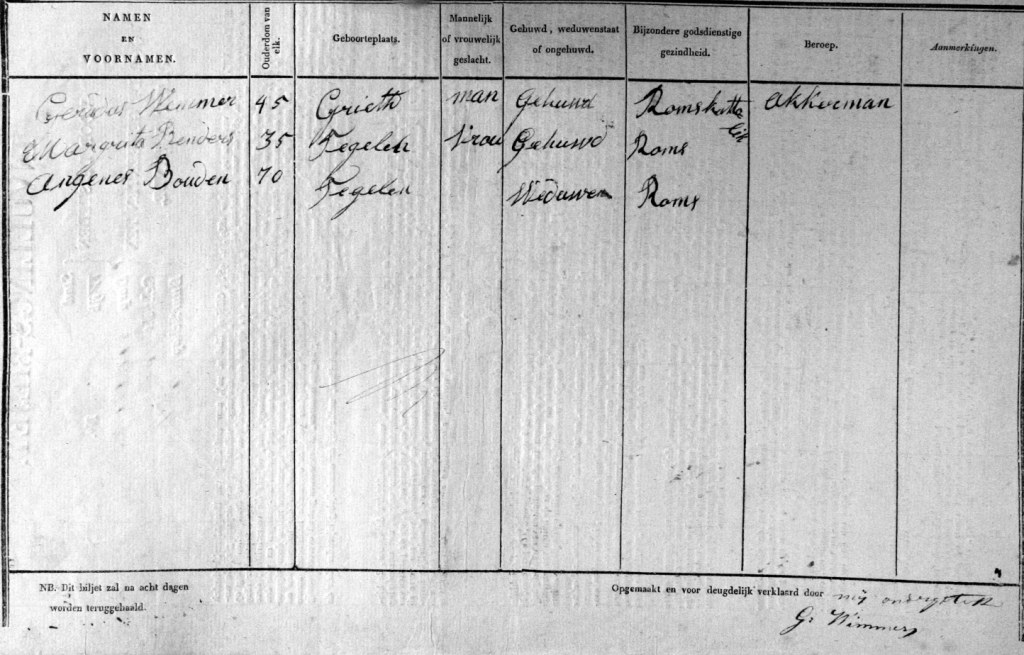 NAMEN EN VOORNAMEN. Ouderdom van elk. Geboorteplaats. Mannelijk of vrouwelijk geslacht. Gehuwd, weduwenstaat of ongehuwd. Bijzondere godsdienstige gezindheid. Beroep. Aanmerkingen.
Gerardus Wemmer 45 Grieth man Gehuwd Romskatto lik akkerman
Margrita Benders 35 Tegelen vrou Gehuwd Roms
Angenes Bouden 70 Tegelen Weduwen Roms
NB. Dit biljet zal na acht dagen worden teruggehaald.
Opgemaakt en voor deugdelijk verklaard door mij
G: Wimmers